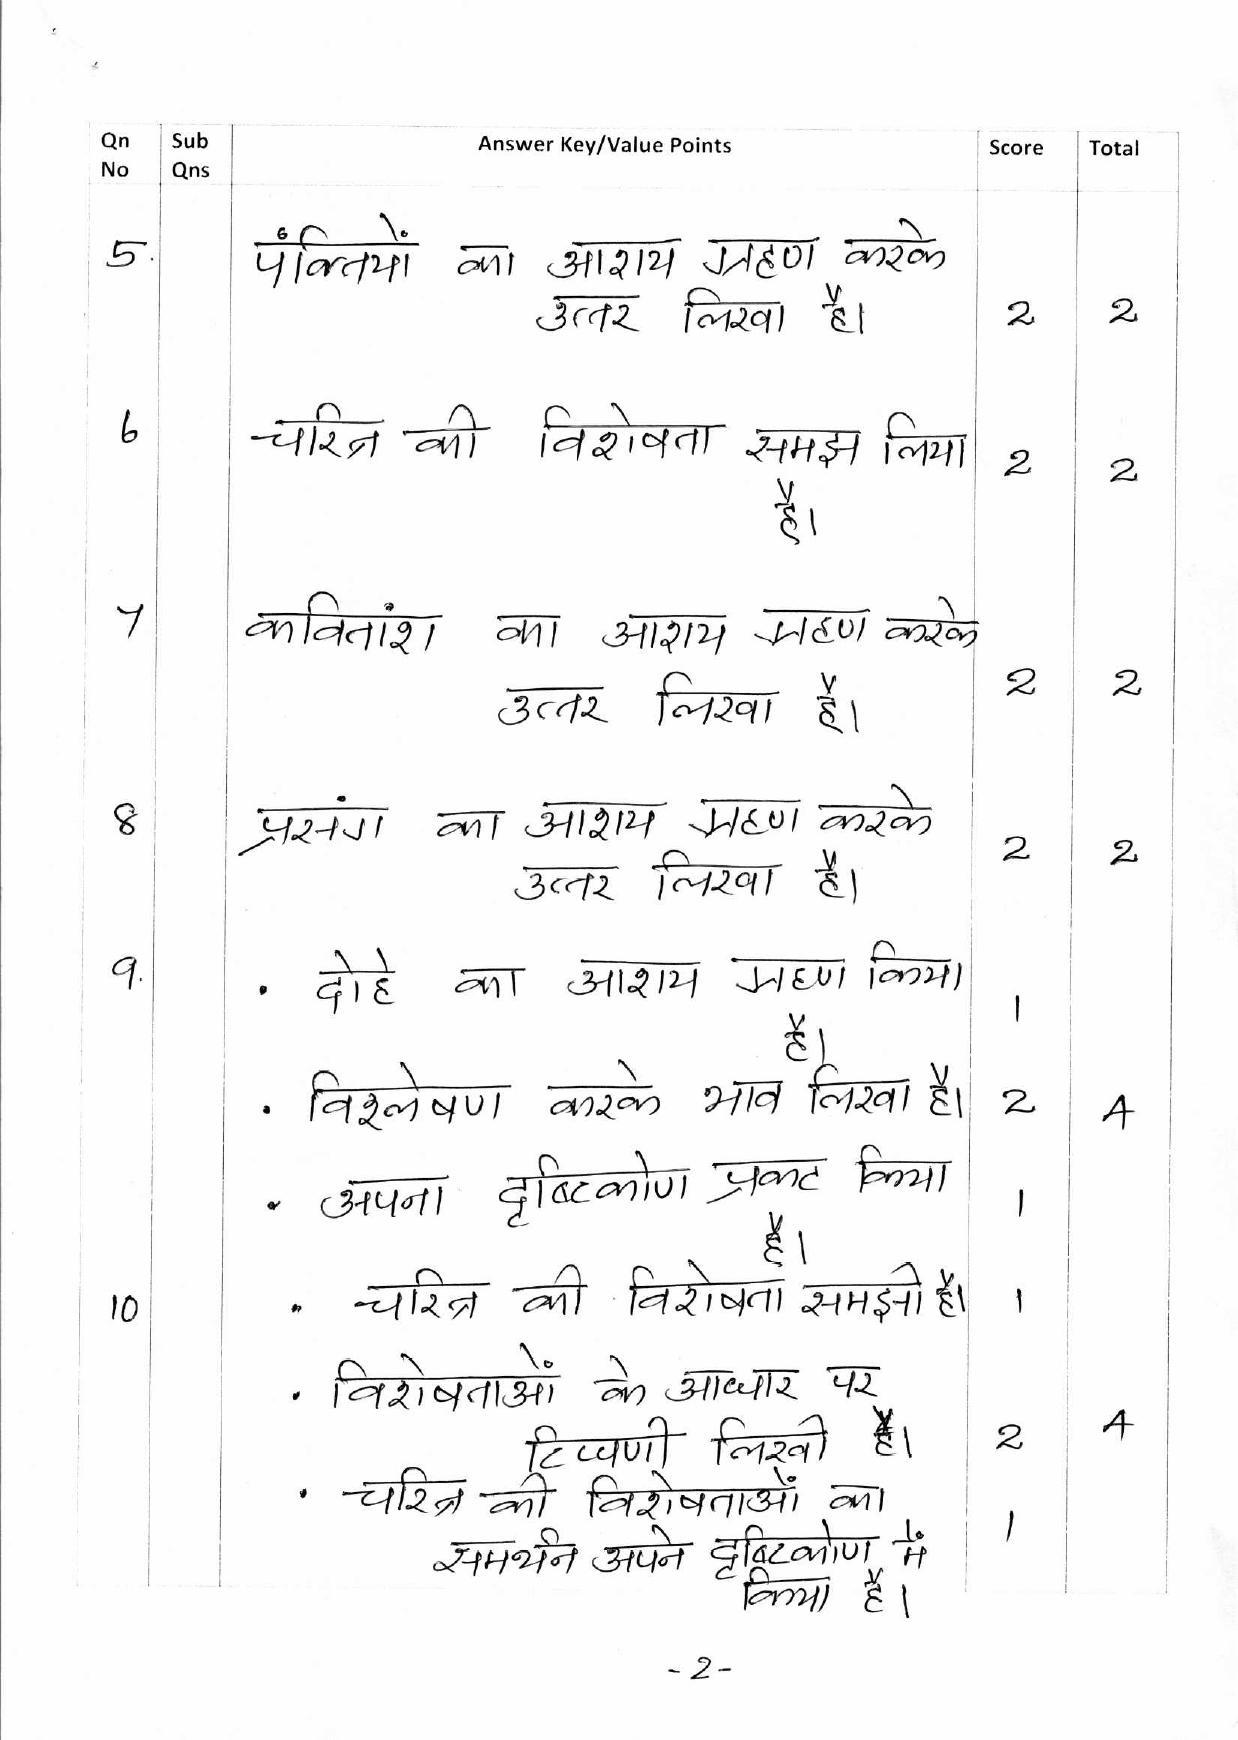 Qn No Sub Qns Answer Key/Value Points Score Total
5. पंक्तियों का आशय ग्रहण करके
उत्तर लिखा है। 2 2
6 चरित्र की विशेषता समझ लिया 2 2
है।
7 कवितांश का आशय ग्रहण करके
उत्तर लिखा है। 2 2
8 प्रसंग का आशय ग्रहण करके
उत्तर लिखा है। 2 2
9. • दोहे का आशय ग्रहण किया
है। 1
• विश्लेषण करके भाव लिखा है। 2 4
• अपना दृष्टिकोण प्रकट किया
है। 1
10 • चरित्र की विशेषता समझी है। 1
• विशेषताओं के आधार पर
टिप्पणी लिखी है। 2 4
• चरित्र की विशेषताओं का
समर्थन अपने दृष्टिकोण में 1
किया है।
-2-